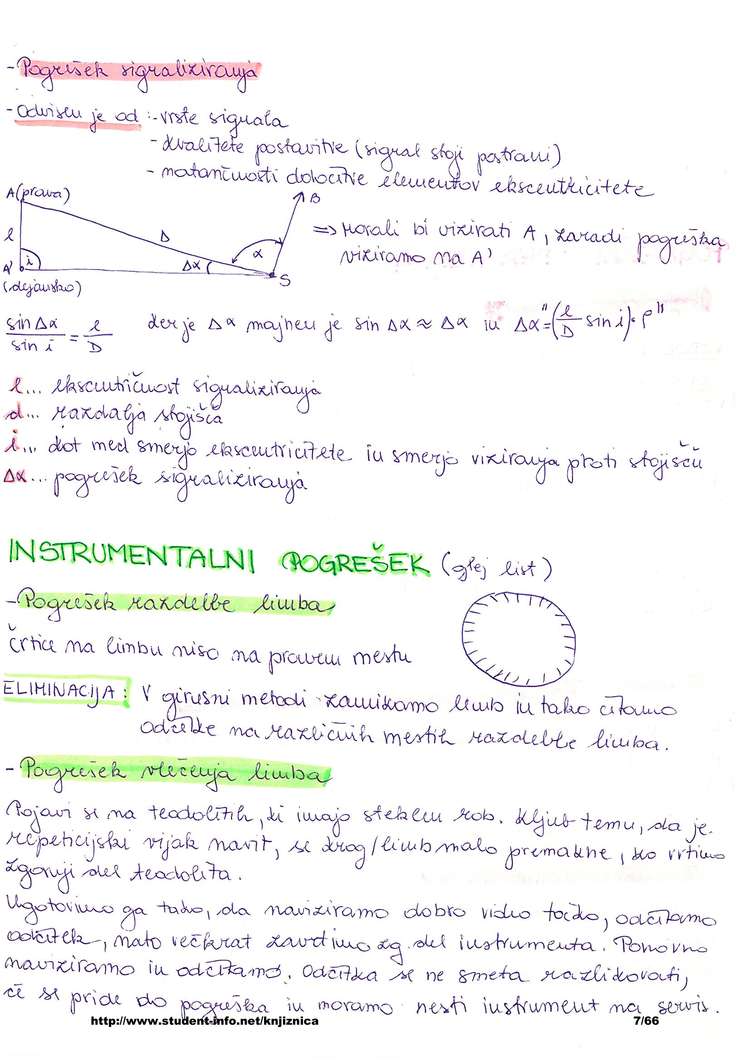 - Pogrešek signaliziranja
- Odvisen je od : - vrste signala
- kvalitete postavitve (signal stoji postrani)
- natančnosti določitve elementov ekscentricitete
A (prava)
B
l
D
α
Δα
i
A'
S
(dejansko)
⇒ Morali bi vizirati A, zaradi pogreška
viziramo na A'
sin Δα / sin i = l / D   ker je Δα majhen je sin Δα ≈ Δα in Δα" = (l/D sin i) · ρ"
l... ekscentričnost signaliziranja
d... razdalja stojišča
i... kot med smerjo ekscentricitete in smerjo viziranja proti stojišču
Δα... pogrešek signaliziranja
INSTRUMENTALNI POGREŠEK (glej list)
- Pogrešek razdelbe limba
Črtice na limbu niso na pravem mestu
ELIMINACIJA: V girusni metodi zamikamo limb in tako čitamo
odčitke na različnih mestih razdelbe limba.
- Pogrešek vlečenja limba
Pojavi se na teodolitih, ki imajo steklen rob. Kljub temu, da je
repeticijski vijak navit, se krog/limb malo premakne, ko vrtimo
zgornji del teodolita.
Ugotovimo ga tako, da naviziramo dobro vidno točko, odčitamo
odčitek, nato večkrat zavrtimo zg. del instrumenta. Ponovno
naviziramo in odčitamo. Odčitka se ne smeta razlikovati,
če se pride do pogreška in moramo nesti instrument na servis.
http://www.student-info.net/knjiznica
7/66